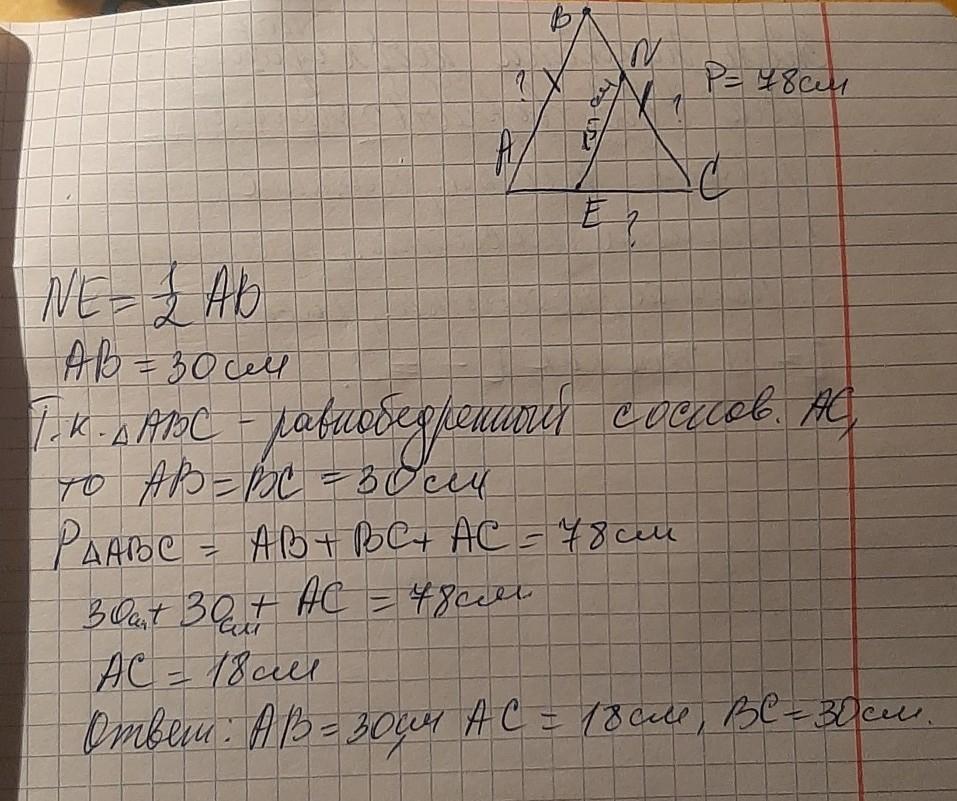 B
N
? 15 см ? P = 78см
A
C
E ?
NE = 1/2 AB
AB = 30 см
Т.к. △ABC - равнобедренный с основ. AC,
то AB = BC = 30 см
P△ABC = AB + BC + AC = 78 см
30см + 30см + AC = 78см
AC = 18 см
Ответ: AB = 30см AC = 18 см, BC = 30 см.